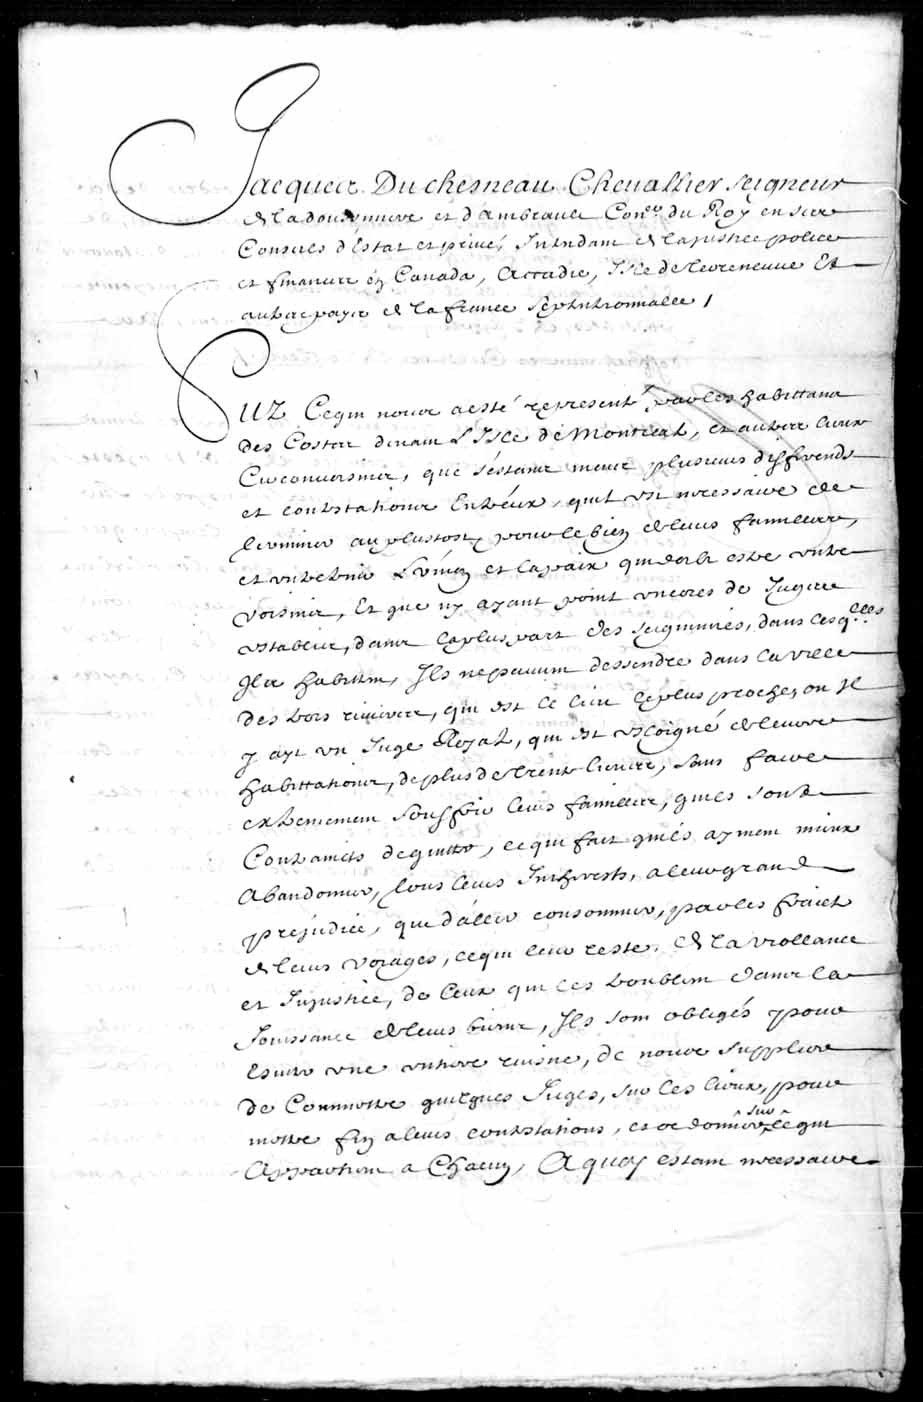 Jacques Duchesneau Chevallier seigneur
de la doussiniere et d'ambrault Con.er du Roy en ses
Conseils d'Estat et privé, Intendant de la justice police
et finances en Canada, Accadie, Isle de terreneuve Et
autres pays de la france septentrionnalle /
SUR Ce qui nous a esté representé, par les habittans
des Costes dans L'Isle de Montreal, et autres lieux
Circonvoisins, que s'estans meus plusieurs differends
et contestations Entr'eux, quil est necessaire de
terminer au plustost, pour le bien de leurs familles,
et entretenir L'vnion et la paix qui doibt estre entre
voisins, Et que n'y ayant point encores de Juges
establis, dans la plus part des seigneuries, dans lesq.lles
Ils habittent, Ils ne peuvent dessendre dans la ville
des trois rivieres, qui est le lieu le plus proche, ou Il
y ayt un Juge Royal, qui est esloigné de leurs
habittations, de plus de trente lieues, sans faire
extremement souffrir leurs familles, qu'ils sont
Contraincts de quitter, ce qui fait qu'ils ayment mieux
Abandonner, tous leurs Interests, a leur grand
prejudice, que d'aller consommer, par les fraicts
de leurs voyages, ce qui leur reste, de la viollance
et Injustice, de Ceux qui les troublent dans la
Jouissance de leurs biens, Ils sont obligés pour
Esviter une entiere ruisne, de nous supplier
de Commettre quelques Juges, sur les lieux, pour
mettre fin a leurs contestations, et ordonner sur ce qui
Appartient a Chacun, A quoy estant necessaire